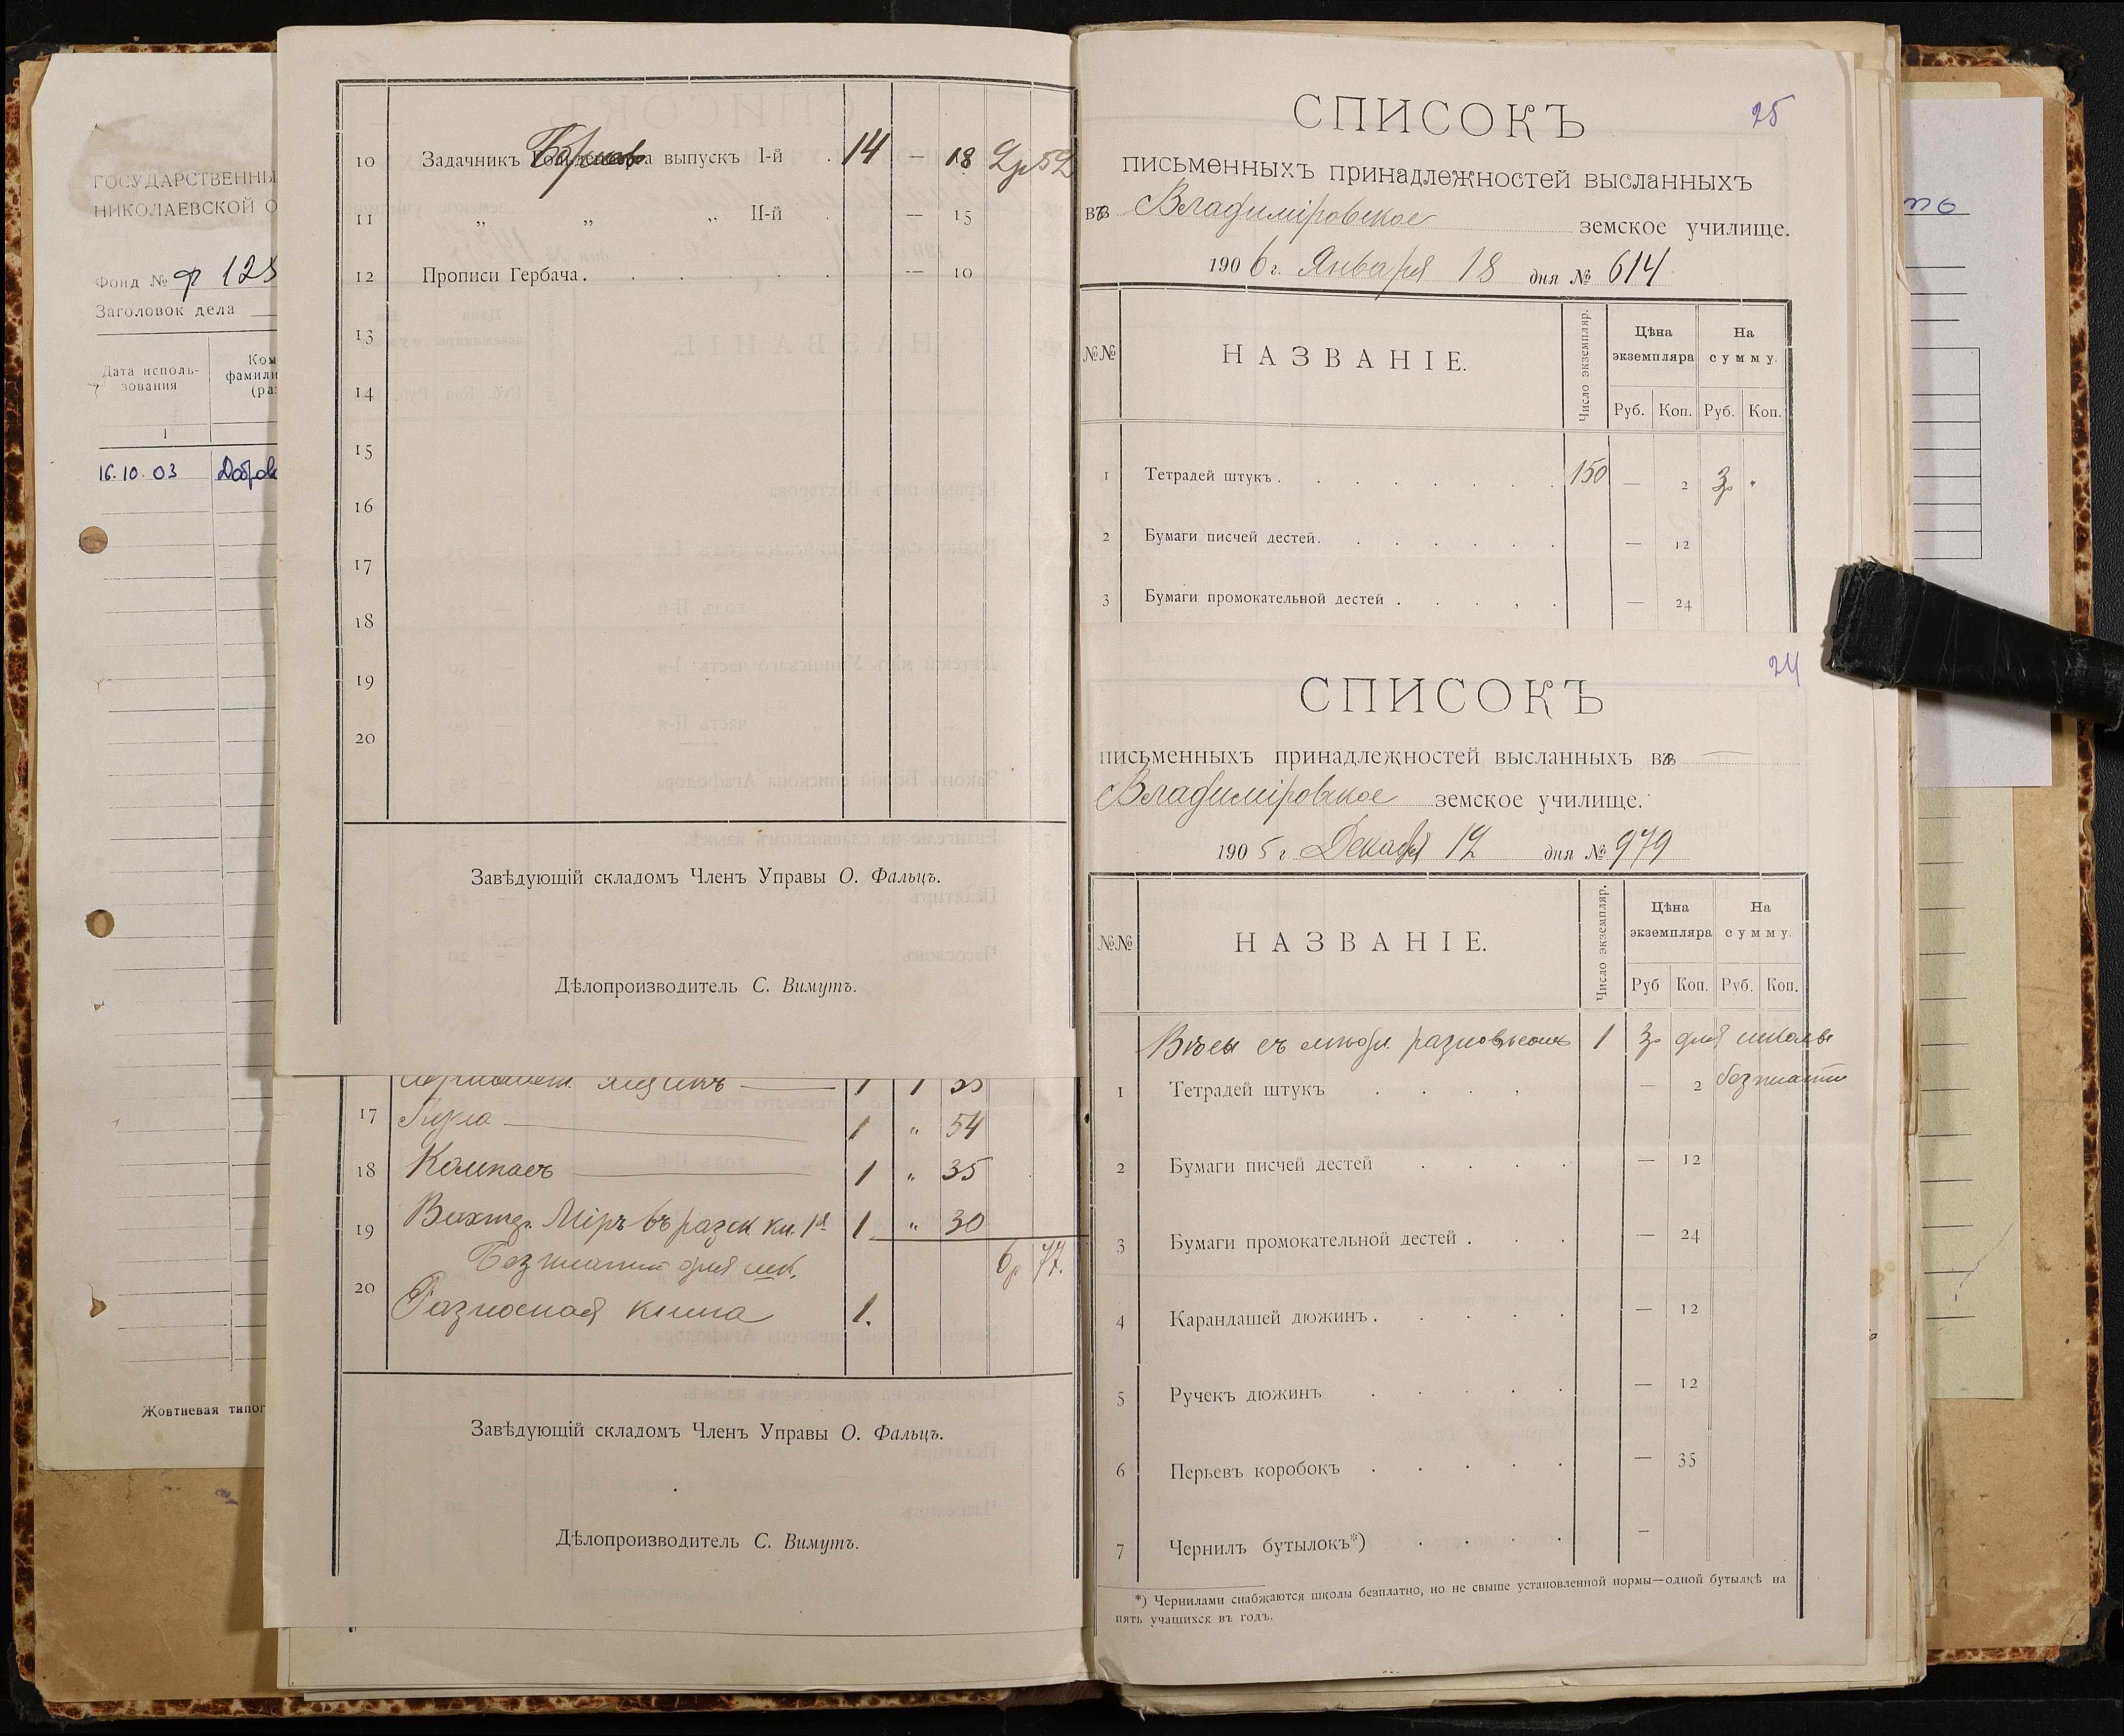 ГОСУДАРСТВЕННЫ
НИКОЛАЕВСКОЙ О
Фонд № ф 128
Заголовок дела
Дата исполь-
зования
Ком
фамили
(ра
1
16.10.03 Добров
Жовтневая типог
10 Задачникъ выпускъ I-й . 14 — 18 2р 52
11 „ „ „ II-й . — 15
12 Прописи Гербача . . . . . . — 10
13
14
15
16
17
18
19
20
Завѣдующій складомъ Членъ Управы О. Фальцъ.
Дѣлопроизводитель С. Вимутъ.
ящикъ 1 1 35
17 1 „ 54
18 Компасъ 1 „ 35
19 Вахтер. Міръ въ разск. кн. 1я 1 „ 30
Безплатно для шк. 6р 77.
20 Разносная книга 1.
Завѣдующій складомъ Членъ Управы О. Фальцъ.
Дѣлопроизводитель С. Вимутъ.
25
СПИСОКЪ
письменныхъ принадлежностей высланныхъ
въ Владиміровское земское училище.
1906 г. Января 18 дня № 614
№№ НАЗВАНІЕ. Число экземпляр. Цѣна экземпляра На сумму.
Руб. Коп. Руб. Коп.
1 Тетрадей штукъ . . . . . . . 150 — 2 3р „
2 Бумаги писчей дестей . . . . . . — 12
3 Бумаги промокательной дестей . . . . . — 24
24
СПИСОКЪ
письменныхъ принадлежностей высланныхъ въ
Владиміровское земское училище.
1905 г Декабря 12 дня № 979
№№ НАЗВАНІЕ. Число экземпляр. Цѣна экземпляра На сумму.
Руб Коп. Руб. Коп.
Вѣсы съ разновѣсомъ 1 3р для школы
безплатно
1 Тетрадей штукъ . . . . — 2
2 Бумаги писчей дестей . . . . — 12
3 Бумаги промокательной дестей . . . — 24
4 Карандашей дюжинъ . . . . . — 12
5 Ручекъ дюжинъ . . . . . — 12
6 Перьевъ коробокъ . . . . . — 35
7 Чернилъ бутылокъ*) . . . . —
*) Чернилами снабжаются школы безплатно, но не свыше установленной нормы—одной бутылкѣ на
пять учащихся въ годъ.